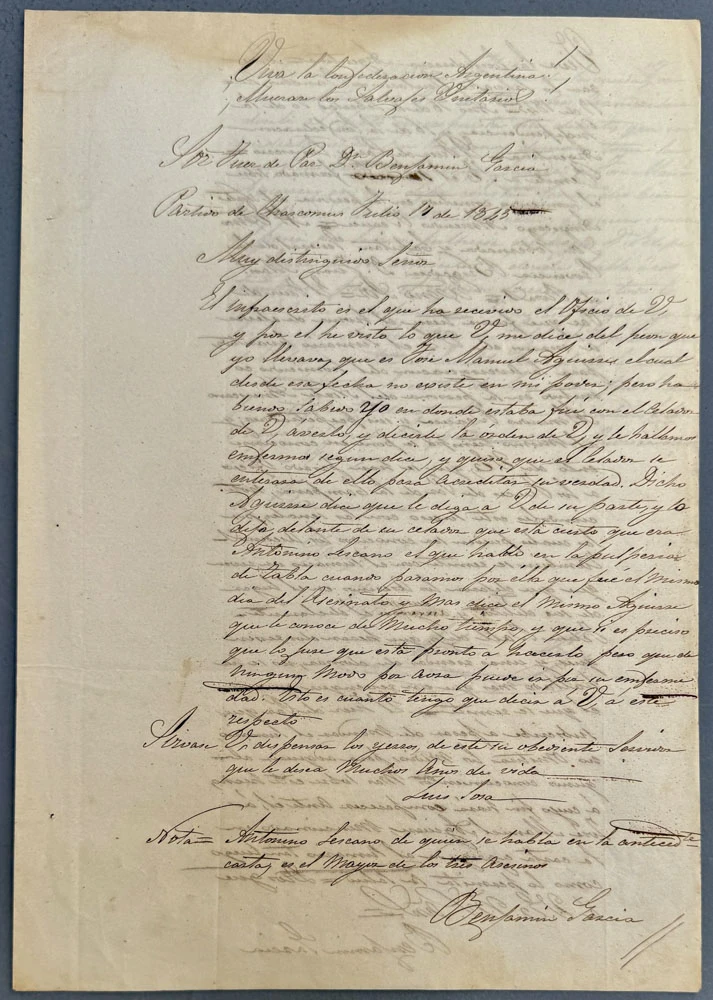 ¡Viva la Confederacion Argentina!
¡Mueran los Salvajes Unitarios!
Sor Juez de Paz Dn. Benjamin Garcia
Partido de Chascomus Julio 17 de 1845
Muy distinguido Señor
El infraescrito es el que ha recivido el Oficio de V,
y por el he visto lo que V me dice del peon que
yo llevava, que es José Manuel Aguirre el cual
desde esa fecha no existe en mi poder; pero ha
biendo sabido yo en donde estaba fui con el Celador
de V, á verlo, y decirle la órden de V, y le hallamos
enfermo segun dice, y quise que el Celador se
enterara de ello para acreditar su verdad. Dicho
Aguirre dice que le diga a V, de su parte, y lo
dijo delante de su celador que está cierto que era
Antonino Lescano el que habló en la pulperia
de tabla cuando paramos por ella que fué el mismo
dia del Asesinato y Mas dice el mismo Aguirre
que le conoce de Mucho tiempo, y que si es preciso
que lo jure que está pronto a hacerlo, pero que de
ningun Modo por aora puede ir por su enferme
dad. Esto es cuanto tengo que decir a V, á este
respecto
Sirvase V, dispensar los yerros, de este su obediente Servidor
que le desea Muchos Años de vida
Luis Sosa
Nota= Antonino Lescano de quien se habla en la antecedte
carta, es el Mayor de los tres Asesinos
Benjamin Garcia